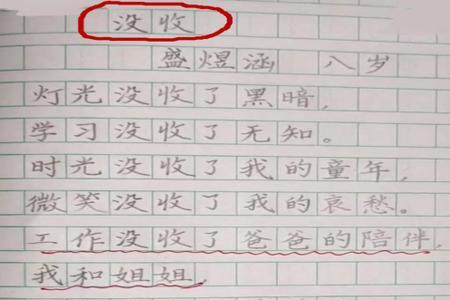 没收
盛煜涵 八岁
灯光没收了黑暗,
学习没收了无知。
时光没收了我的童年,
微笑没收了我的哀愁。
工作没收了爸爸的陪伴,
我和姐姐,